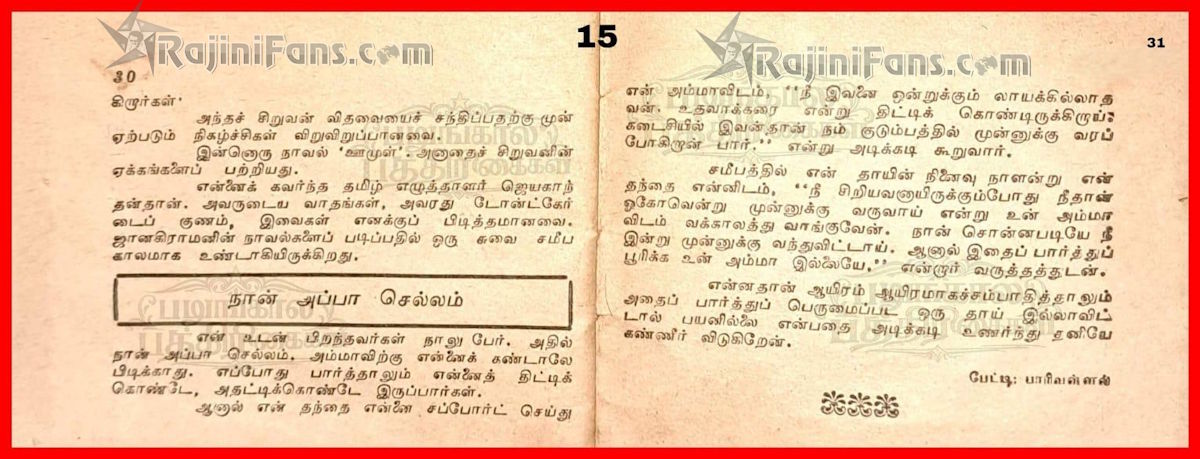 15
31
RajiniFans.com
RajiniFans.com
30
கிறார்கள்'
அந்தச் சிறுவன் விதவையைச் சந்திப்பதற்கு முன்
ஏற்படும் நிகழ்ச்சிகள் விறுவிறுப்பானவை.
இன்னொரு நாவல் 'ஊமுள்'. அனாதைச் சிறுவனின்
ஏக்கங்களைப் பற்றியது.
என்னைக் கவர்ந்த தமிழ் எழுத்தாளர் ஜெயகாந்
தன்தான். அவருடைய வாதங்கள், அவரது டோன்ட்கேர்
டைப் குணம், இவைகள் எனக்குப் பிடித்தமானவை.
ஜானகிராமனின் நாவல்களைப் படிப்பதில் ஒரு சுவை சமீப
காலமாக உண்டாகியிருக்கிறது.
நான் அப்பா செல்லம்
என் உடன் பிறந்தவர்கள் நாலு பேர். அதில்
நான் அப்பா செல்லம். அம்மாவிற்கு என்னைக் கண்டாலே
பிடிக்காது. எப்போது பார்த்தாலும் என்னைத் திட்டிக்
கொண்டே, அதட்டிக்கொண்டே இருப்பார்கள்.
ஆனால் என் தந்தை என்னை சப்போர்ட் செய்து
என் அம்மாவிடம், “நீ இவனை ஒன்றுக்கும் லாயக்கில்லாத
வன். உதவாக்கரை என்று திட்டிக் கொண்டிருக்கிறாய்.
கடைசியில் இவன்தான் நம் குடும்பத்தில் முன்னுக்கு வரப்
போகிறான் பார்.” என்று அடிக்கடி கூறுவார்.
சமீபத்தில் என் தாயின் நினைவு நாளன்று என்
தந்தை என்னிடம், “நீ சிறியவனாயிருக்கும்போது நீதான்
ஒகோவென்று முன்னுக்கு வருவாய் என்று உன் அம்மா
விடம் வக்காலத்து வாங்குவேன். நான் சொன்னபடியே நீ
இன்று முன்னுக்கு வந்துவிட்டாய். ஆனால் இதைப் பார்த்துப்
பூரிக்க உன் அம்மா இல்லையே,” என்றார் வருத்தத்துடன்.
என்னதான் ஆயிரம் ஆயிரமாகச்சம்பாதித்தாலும்
அதைப் பார்த்துப் பெருமைப்பட ஒரு தாய் இல்லாவிட்
டால் பயனில்லை என்பதை அடிக்கடி உணர்ந்து தனியே
கண்ணீர் விடுகிறேன்.
பேட்டி: பாரிவள்ளல்